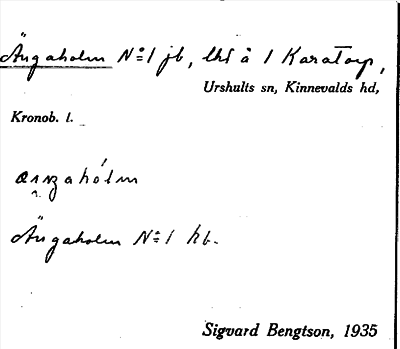 Ängaholm No 1 jb, lht å 1 Karatorp,
Urshults sn, Kinnevalds hd,
Kronob. l.
Ängaholm No 1 kb.
Sigvard Bengtson, 1935